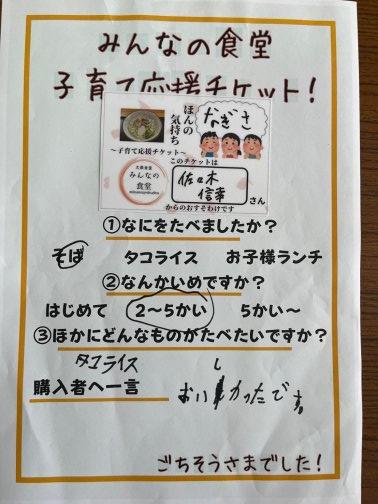 みんなの食堂
子育て応援チケット!
ほんの
気持ち
なぎさ
〜子育て応援チケット〜
みんなの
食堂
このチケットは
佐々木
信幸
さん
からのおすそわけです
①なにをたべましたか?
そば タコライス お子様ランチ
②なんかいめですか?
はじめて 2〜5かい 5かい〜
③ほかにどんなものがたべたいですか?
タコライス
購入者へ一言
おいしかったです。
ごちそうさまでした!